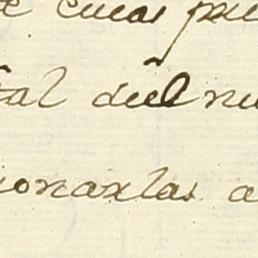 e cucas pu
tal del nu
ionarlas a